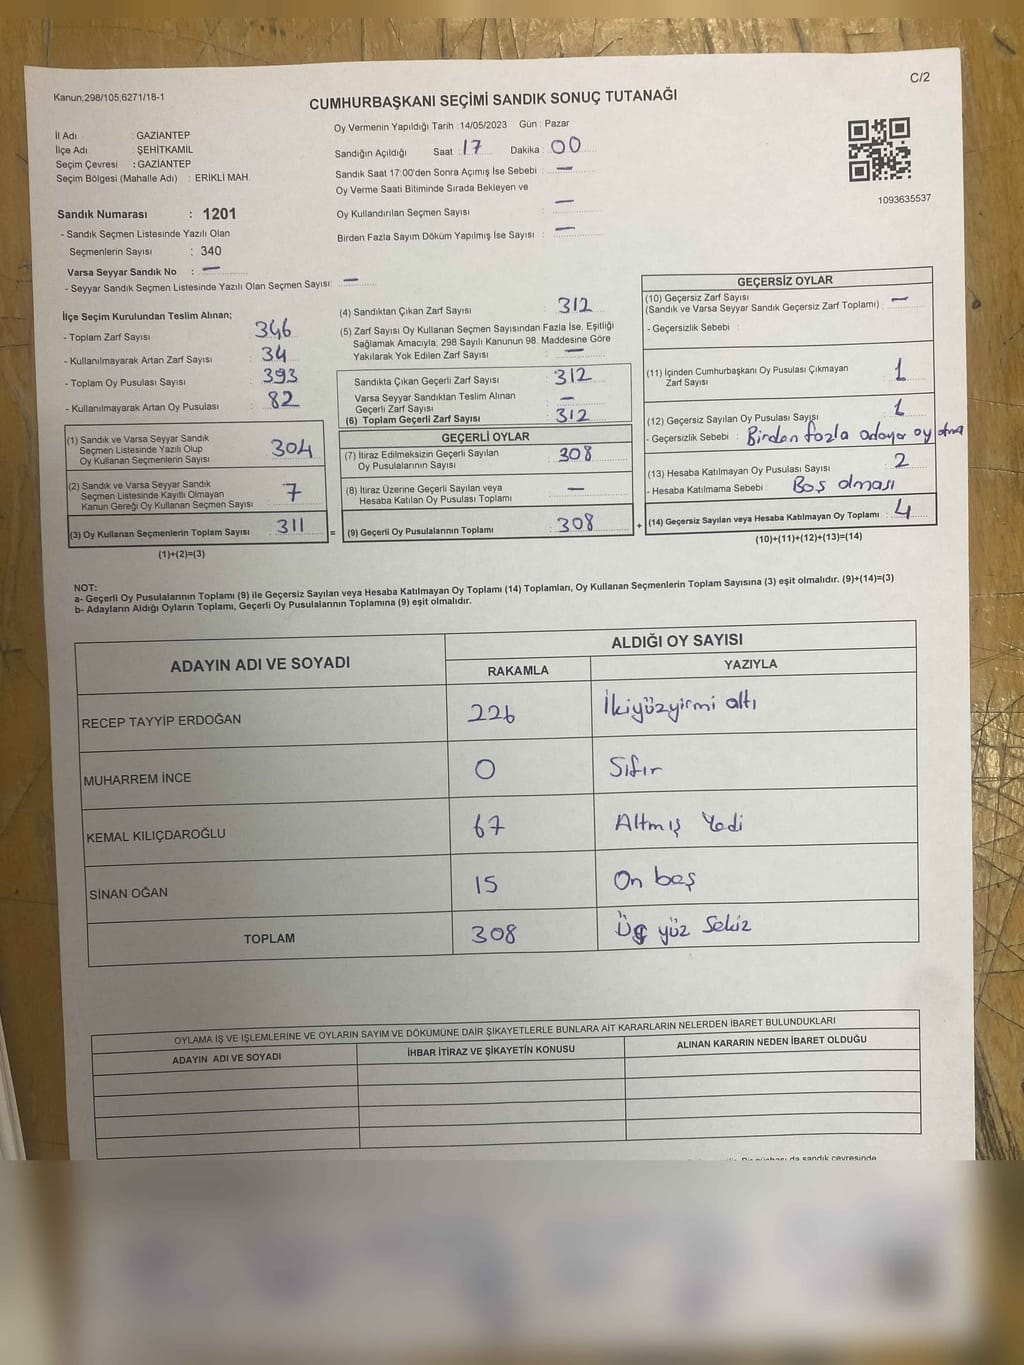 C/2
Kanun;298/105,6271/18-1
CUMHURBAŞKANI SEÇİMİ SANDIK SONUÇ TUTANAĞI
İl Adı : GAZİANTEP
İlçe Adı : ŞEHİTKAMİL
Seçim Çevresi : GAZİANTEP
Seçim Bölgesi (Mahalle Adı) : ERİKLİ MAH.
Oy Vermenin Yapıldığı Tarih : 14/05/2023 Gün : Pazar
Sandığın Açıldığı Saat : 17 Dakika : 00
Sandık Saat 17:00'den Sonra Açımış İse Sebebi : —
Oy Verme Saati Bitiminde Sırada Bekleyen ve
Oy Kullandırılan Seçmen Sayısı : —
Birden Fazla Sayım Döküm Yapılmış İse Sayısı : —
1093635537
Sandık Numarası : 1201
- Sandık Seçmen Listesinde Yazılı Olan
Seçmenlerin Sayısı : 340
Varsa Seyyar Sandık No : —
- Seyyar Sandık Seçmen Listesinde Yazılı Olan Seçmen Sayısı: —
İlçe Seçim Kurulundan Teslim Alınan;
- Toplam Zarf Sayısı 346
- Kullanılmayarak Artan Zarf Sayısı : 34
- Toplam Oy Pusulası Sayısı : 393
- Kullanılmayarak Artan Oy Pusulası : 82
(1) Sandık ve Varsa Seyyar Sandık
Seçmen Listesinde Yazılı Olup
Oy Kullanan Seçmenlerin Sayısı 304
(2) Sandık ve Varsa Seyyar Sandık
Seçmen Listesinde Kayıtlı Olmayan
Kanun Gereği Oy Kullanan Seçmen Sayısı 7
(3) Oy Kullanan Seçmenlerin Toplam Sayısı 311 =
(1)+(2)=(3)
(4) Sandıktan Çıkan Zarf Sayısı : 312
(5) Zarf Sayısı Oy Kullanan Seçmen Sayısından Fazla İse, Eşitliği
Sağlamak Amacıyla; 298 Sayılı Kanunun 98. Maddesine Göre
Yakılarak Yok Edilen Zarf Sayısı : —
Sandıkta Çıkan Geçerli Zarf Sayısı : 312
Varsa Seyyar Sandıktan Teslim Alınan
Geçerli Zarf Sayısı : —
(6) Toplam Geçerli Zarf Sayısı : 312
GEÇERLİ OYLAR
(7) İtiraz Edilmeksizin Geçerli Sayılan
Oy Pusulalarının Sayısı : 308
(8) İtiraz Üzerine Geçerli Sayılan ve
Hesaba Katılan Oy Pusulası Toplamı : —
(9) Geçerli Oy Pusulalarının Toplamı : 308 +
GEÇERSİZ OYLAR
(10) Geçersiz Zarf Sayısı
(Sandık ve Varsa Seyyar Sandık Geçersiz Zarf Toplamı) : —
- Geçersizlik Sebebi :
(11) İçinden Cumhurbaşkanı Oy Pusulası Çıkmayan
Zarf Sayısı : 1
(12) Geçersiz Sayılan Oy Pusulası Sayısı : 1
- Geçersizlik Sebebi : Birden fazla adaya oy atma
(13) Hesaba Katılmayan Oy Pusulası Sayısı : 2
- Hesaba Katılmama Sebebi : Boş olması
(14) Geçersiz Sayılan veya Hesaba Katılmayan Oy Toplamı : 4
(10)+(11)+(12)+(13)=(14)
NOT:
a- Geçerli Oy Pusulalarının Toplamı (9) ile Geçersiz Sayılan veya Hesaba Katılmayan Oy Toplamı (14) Toplamları, Oy Kullanan Seçmenlerin Toplam Sayısına (3) eşit olmalıdır. (9)+(14)=(3)
b- Adayların Aldığı Oyların Toplamı, Geçerli Oy Pusulalarının Toplamına (9) eşit olmalıdır.
ADAYIN ADI VE SOYADI ALDIĞI OY SAYISI
RAKAMLA YAZIYLA
RECEP TAYYİP ERDOĞAN 226 İkiyüzyirmi altı
MUHARREM İNCE 0 Sıfır
KEMAL KILIÇDAROĞLU 67 Altmış Yedi
SİNAN OĞAN 15 On beş
TOPLAM 308 Üç yüz Sekiz
OYLAMA İŞ VE İŞLEMLERİNE VE OYLARIN SAYIM VE DÖKÜMÜNE DAİR ŞİKAYETLERLE BUNLARA AİT KARARLARIN NELERDEN İBARET BULUNDUKLARI
ADAYIN ADI VE SOYADI İHBAR İTİRAZ VE ŞİKAYETİN KONUSU ALINAN KARARIN NEDEN İBARET OLDUĞU
da sandık çevresinde